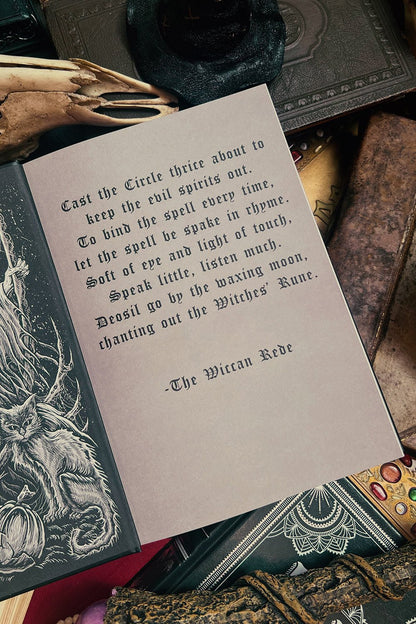 Cast the Circle thrice about to
keep the evil spirits out.
To bind the spell every time,
let the spell be spake in rhyme.
Soft of eye and light of touch,
Speak little, listen much.
Deosil go by the waxing moon,
chanting out the Witches' Rune.
-The Wiccan Rede